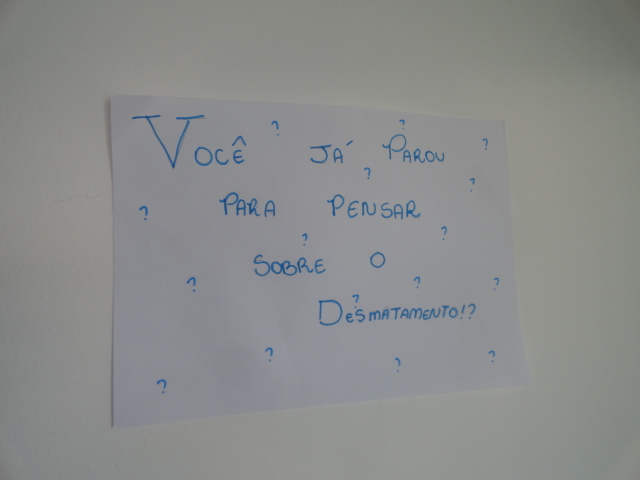 VOCÊ JÁ PAROU
PARA PENSAR
SOBRE O
DeSMATAMENTO!?